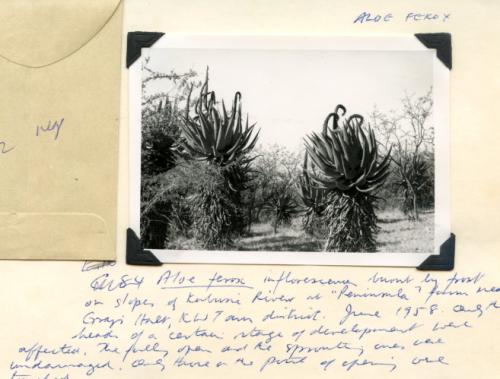 ALOE FEROX
neg
Aloe ferox inflorescence burnt by frost
on slopes of River at "Peninsula" farm near
Halt, K W Town district. June 1958. Only
heads of a certain stage of development were
affected. The fully open and the sprouting ones were
undamaged. Only those on the point of opening were